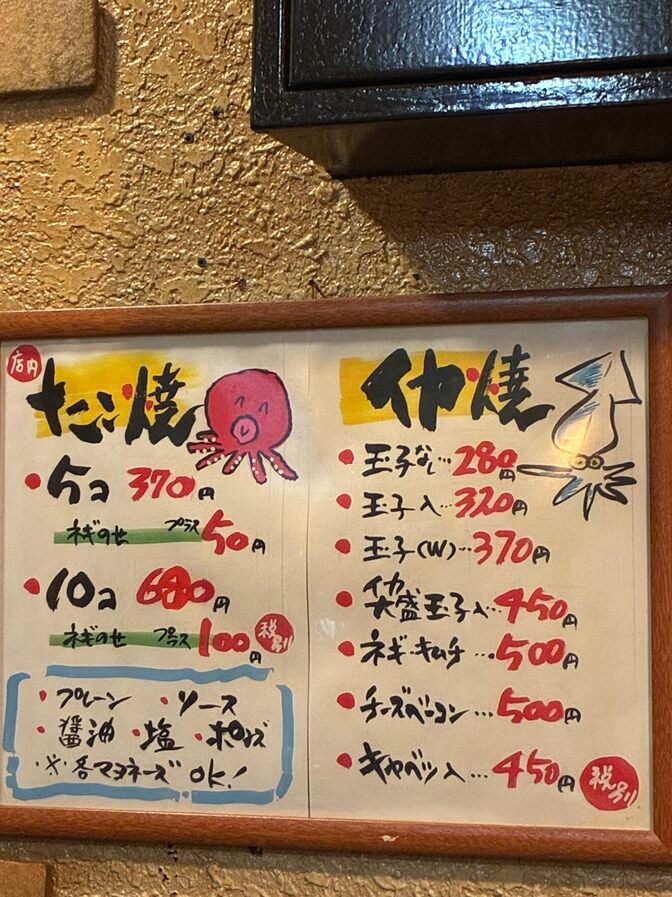 店内
たこ焼
5コ 370円
ネギのせ プラス50円
10コ 円
ネギのせ プラス100円
税別
・プレーン ・ソース
・醤油 ・塩 ・ポンズ
※各マヨネーズOK!
イカ焼
玉子なし…280円
玉子入…320円
玉子(W)…370円
イカ大盛玉子入…450円
ネギ・キムチ…500円
チーズベーコン…500円
キャベツ入…450円
税別